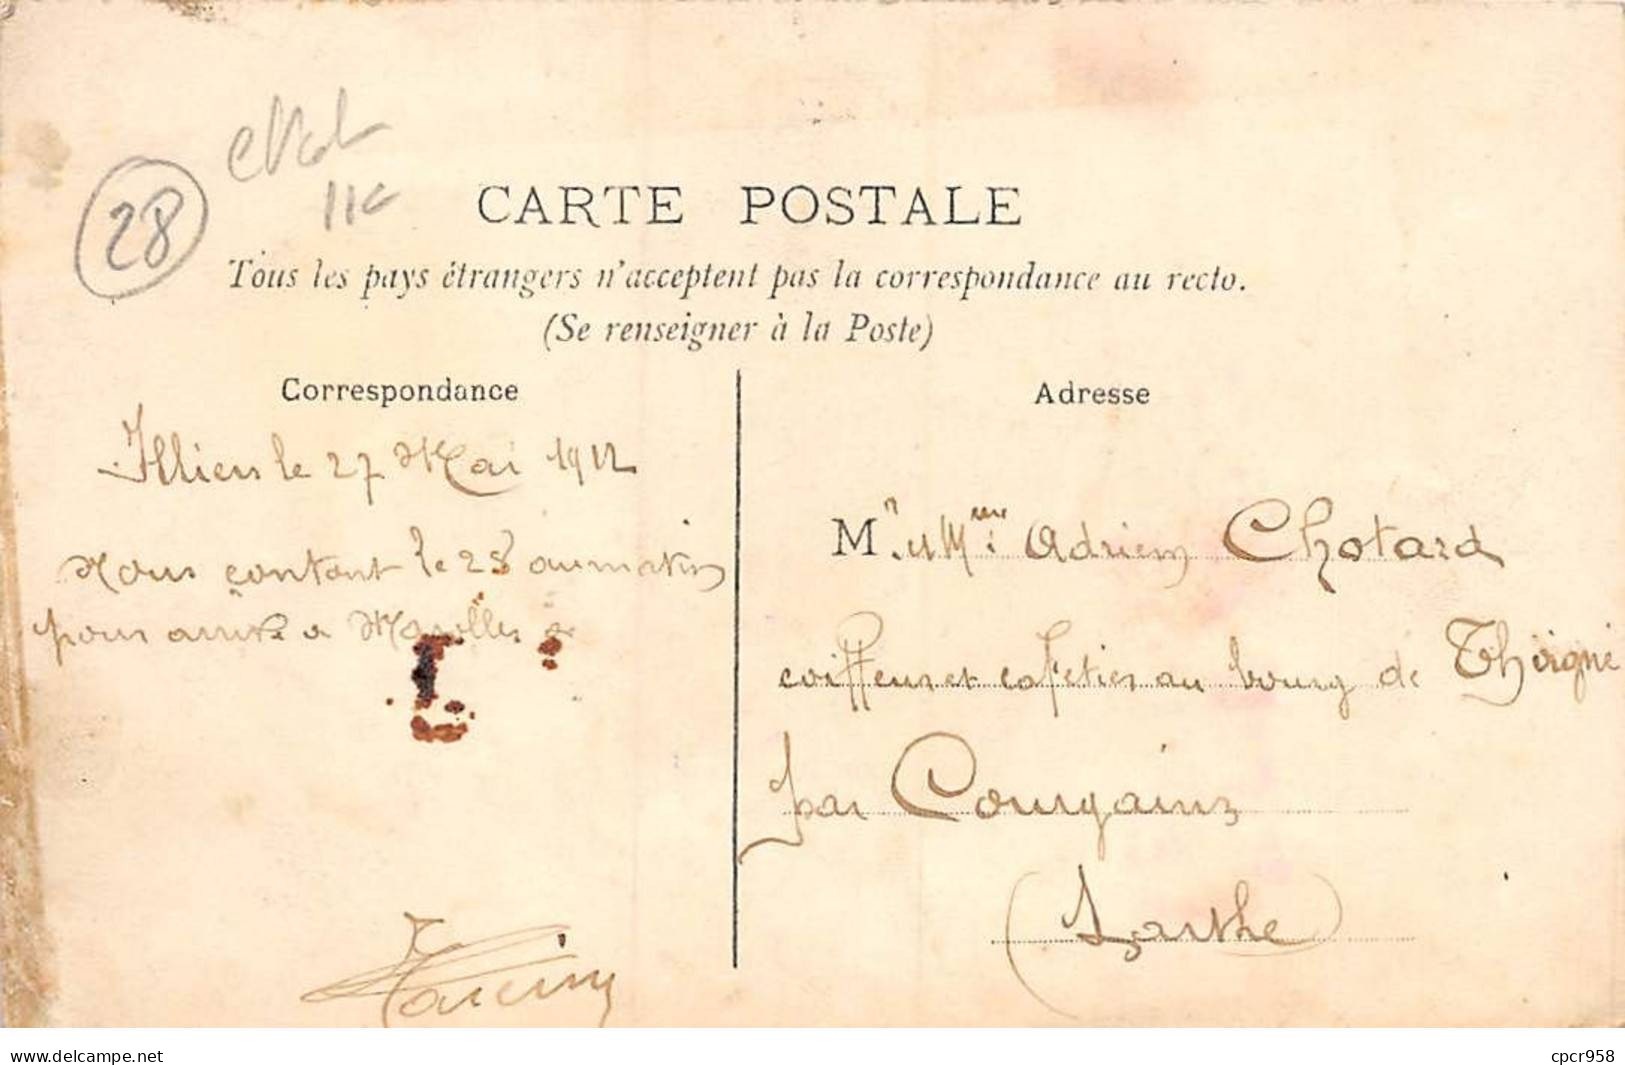 28
11c
CARTE POSTALE
Tous les pays étrangers n'acceptent pas la correspondance au recto.
(Se renseigner à la Poste)
Correspondance
Illiers le 27 Mai 1912
Nous le 28 au matin
pour a Marolles
Adresse
Mr. et Mme: Adrien Chotard
coiffeur et cafetier au bourg de Thoigné
par Courgains
(Sarthe)
www.delcampe.net
cpcr958